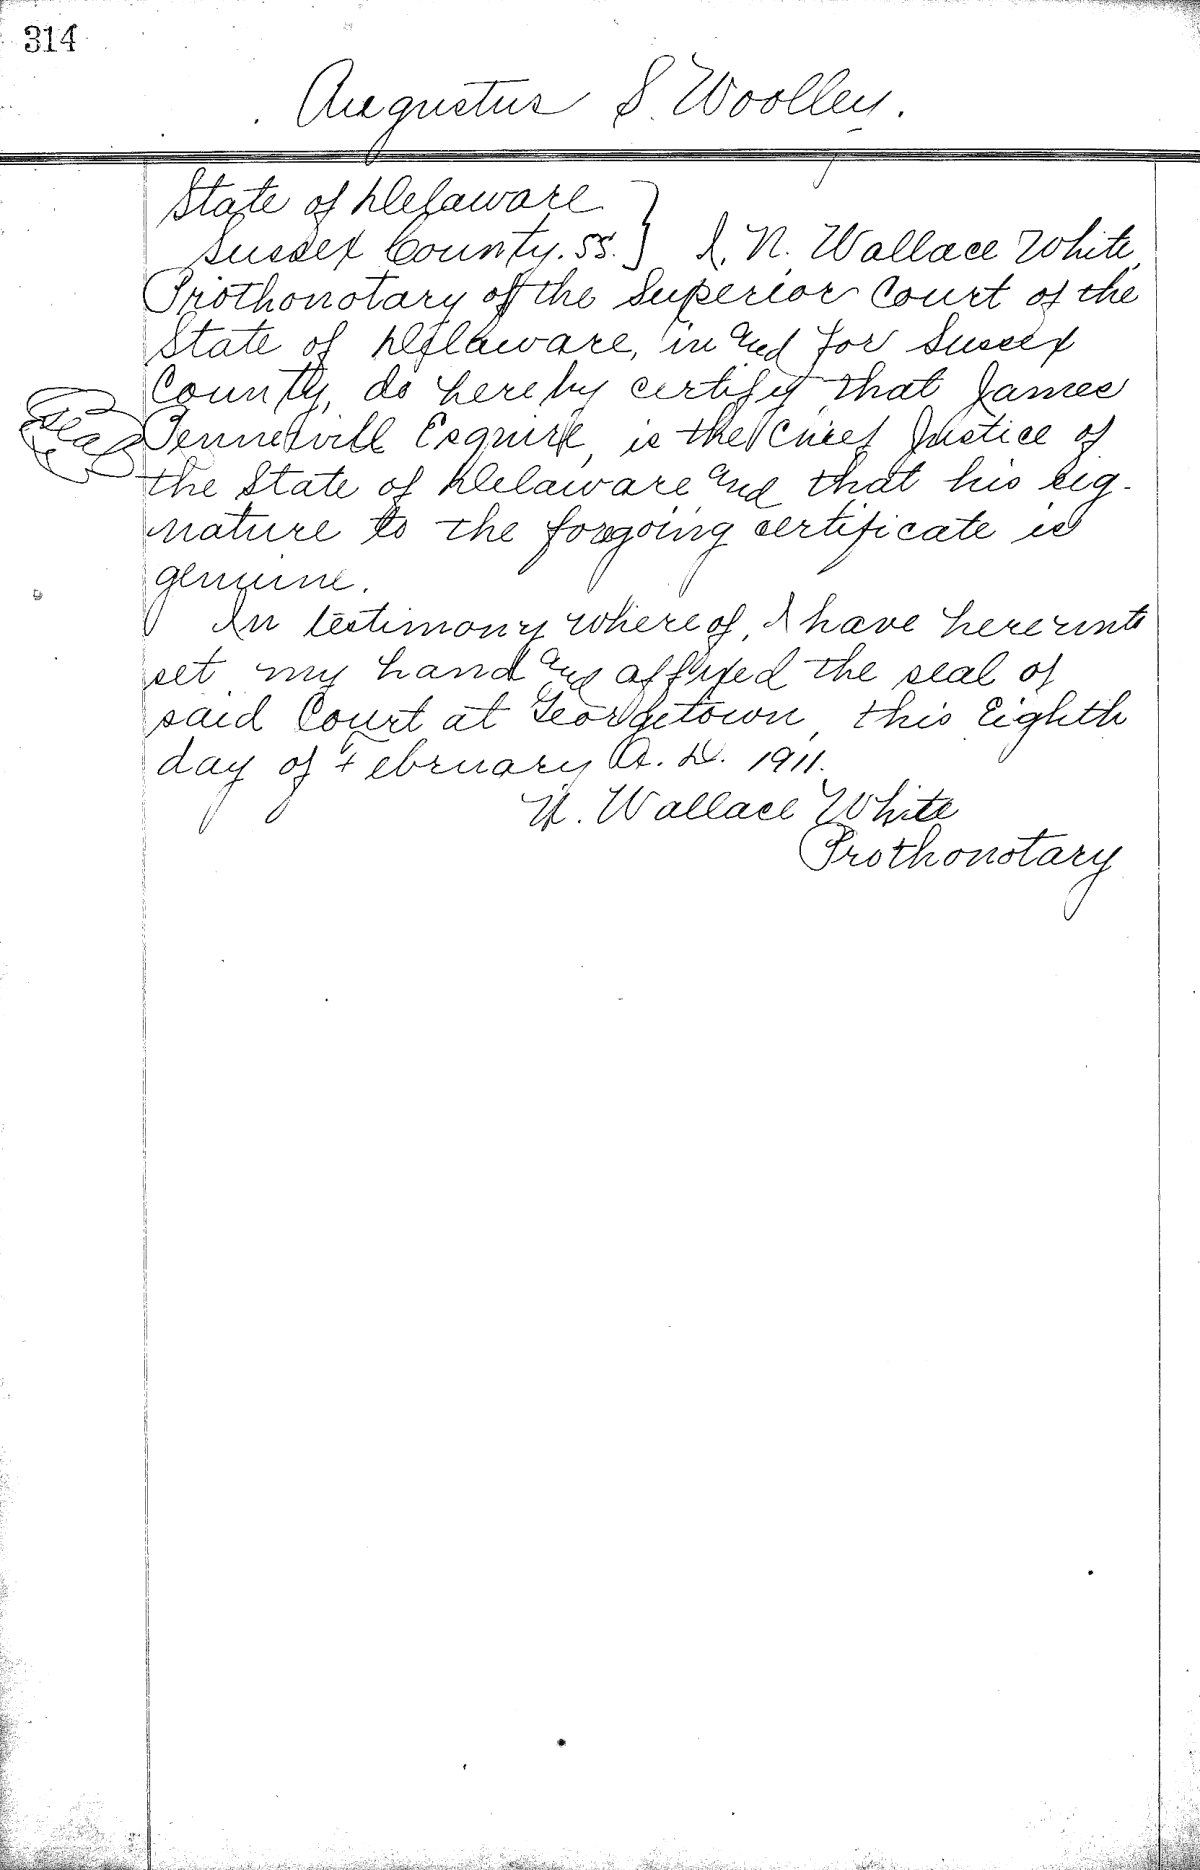 314
Augustus S. Woolley.
State of Delaware
Sussex County. ss. } I, N. Wallace White,
Prothonotary of the Superior Court of the
State of Delaware, in and for Sussex
County, do hereby certify that James
Seal
Pennewill Esquire, is the Chief Justice of
the State of Delaware and that his sig-
nature to the forgoing certificate is
genuine.
In testimony whereof, I have hereunto
set my hand and affixed the seal of
said Court at Georgetown, this Eighth
day of February A. D. 1911.
N. Wallace White
Prothonotary